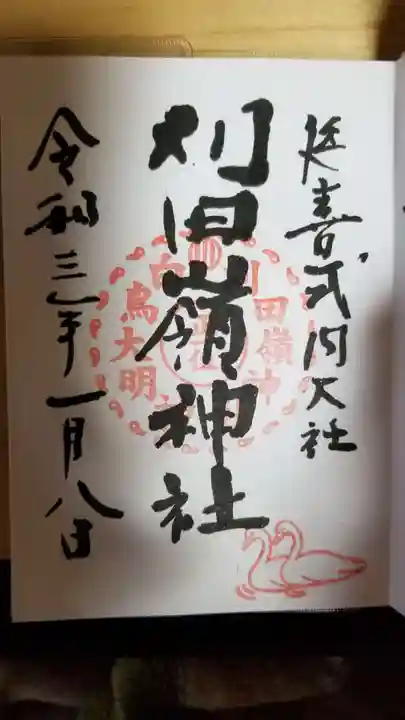 延喜式内大社
刈田嶺神社
令和三年一月八日
刈田嶺神
白鳥大明